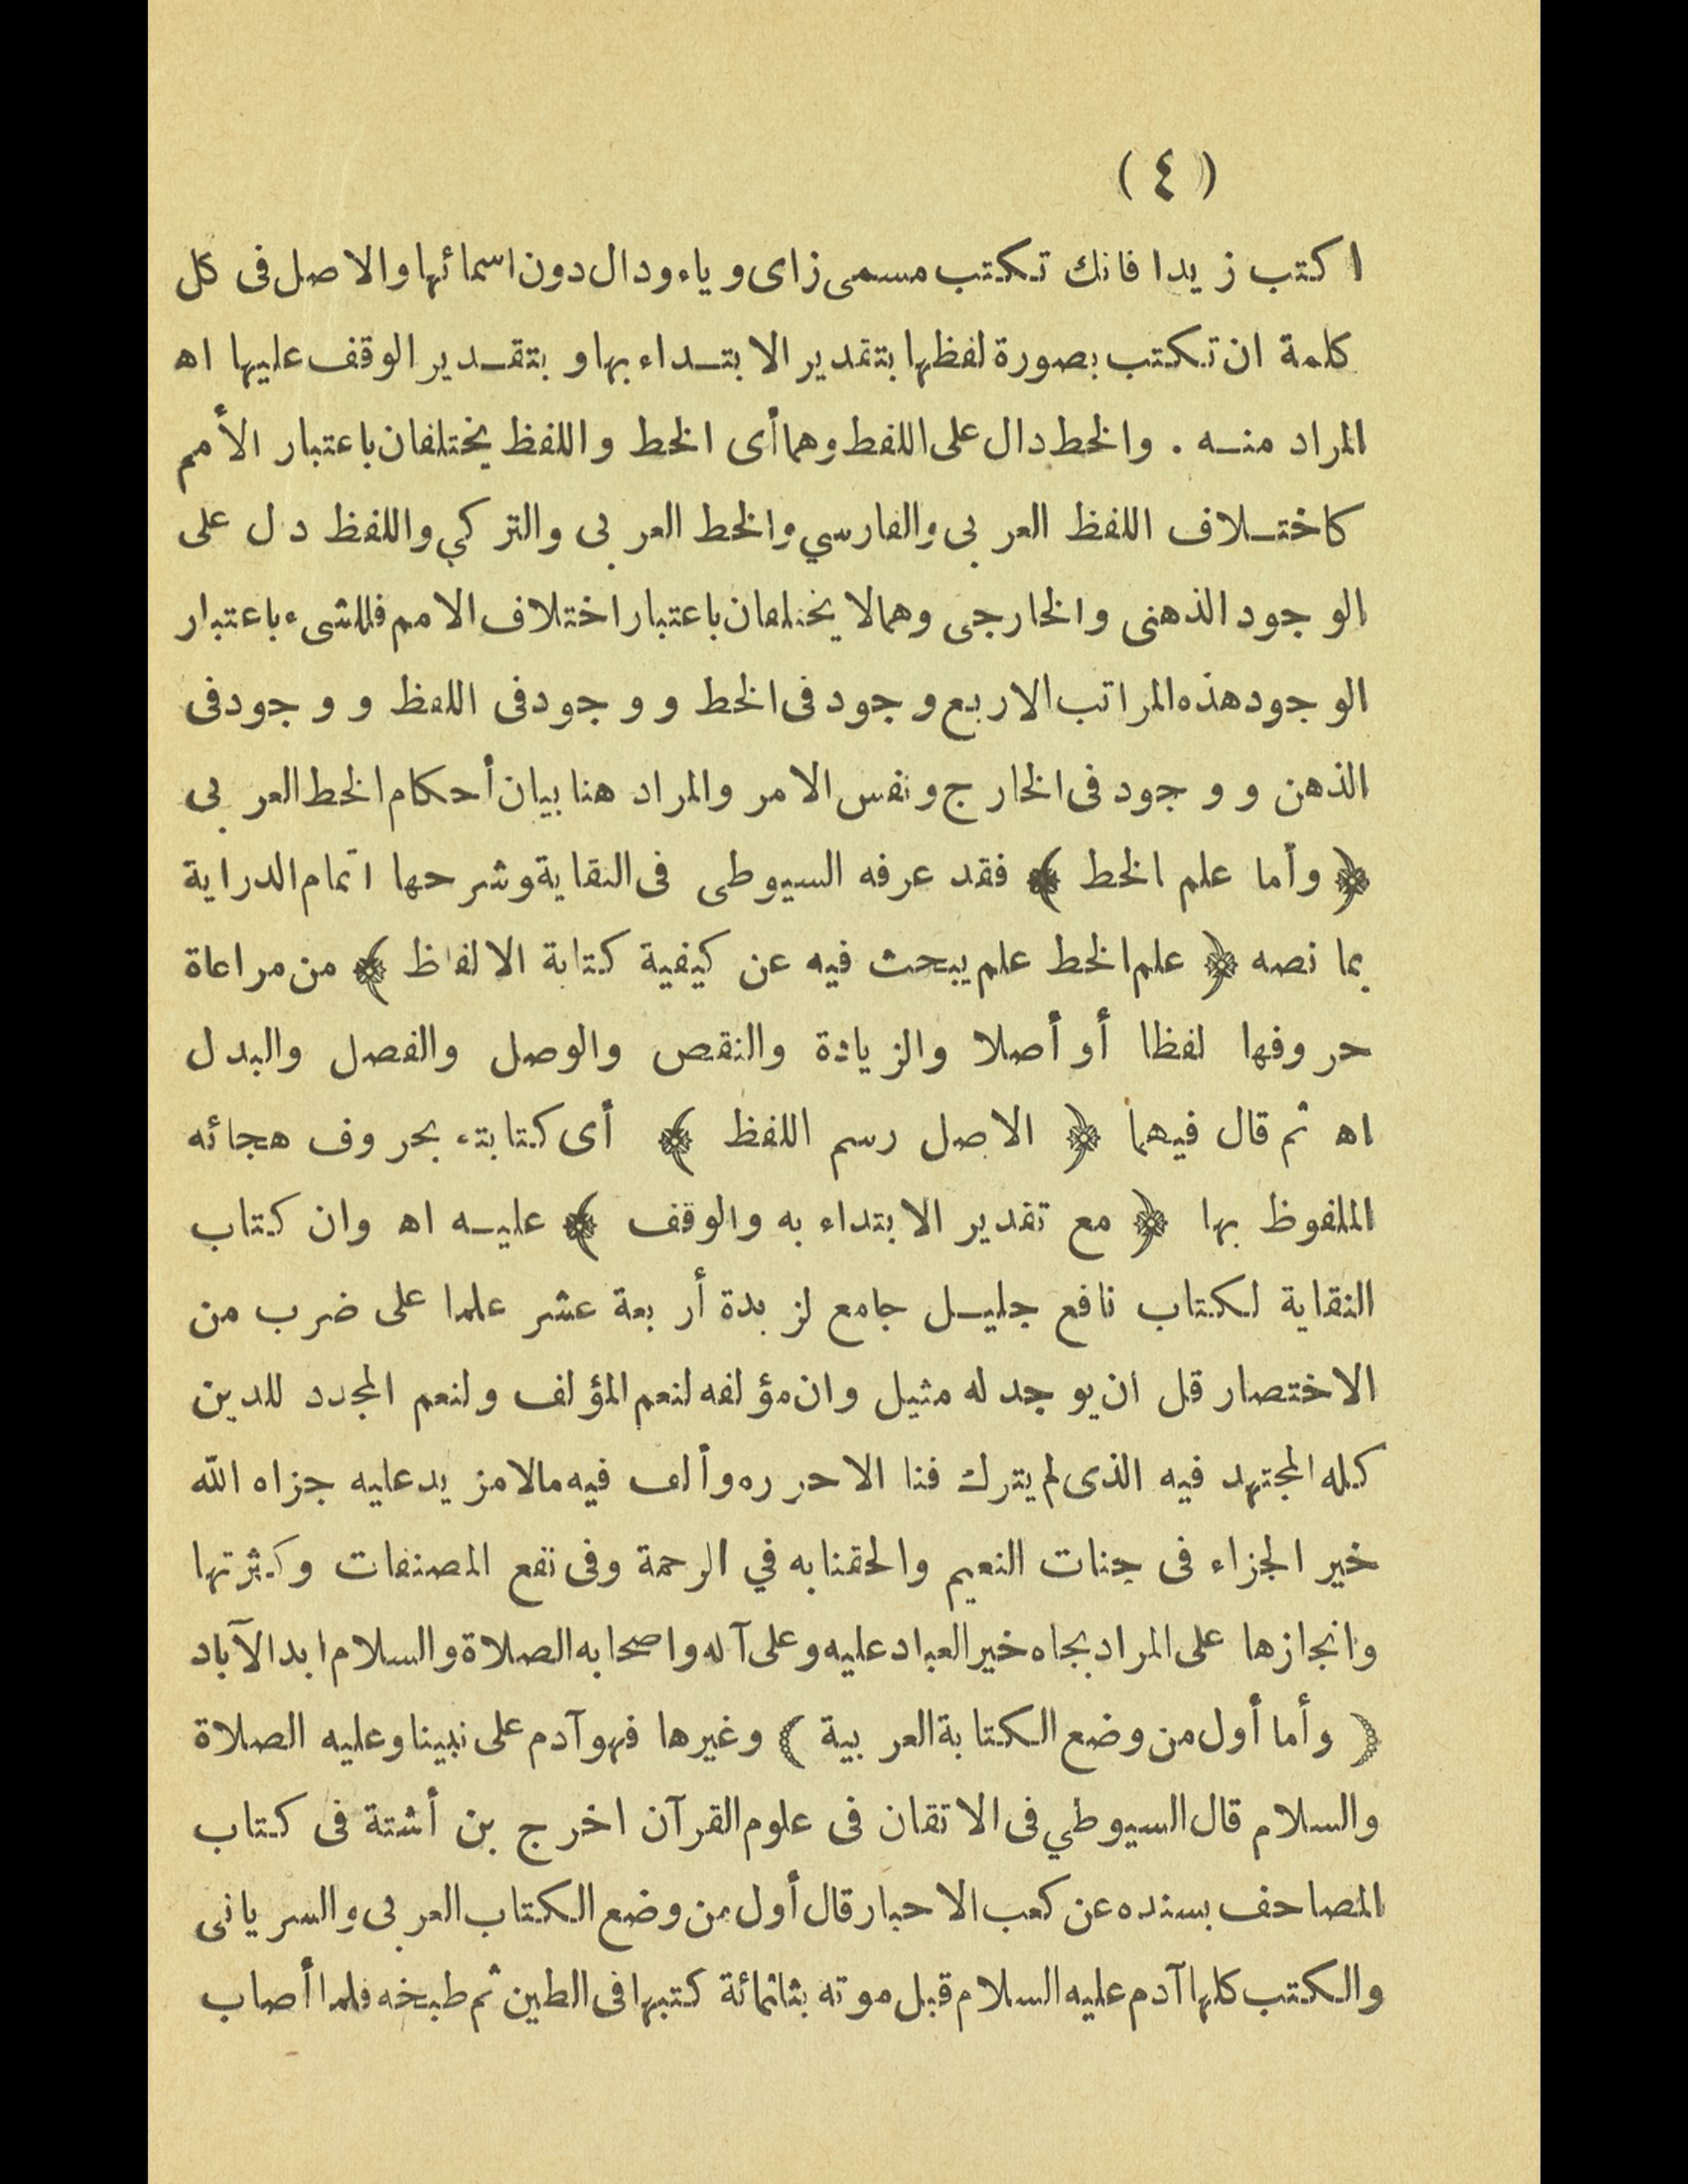 ( ٤ )
اكتب زيدا فانك تكتب مسمى زاى وياء ودال دون اسمائها والاصل فى كل
كلمة ان تكتب بصورة لفظها بتقدير الابتداء بها وبتقدير الوقف عليها اه
المراد منه . والخط دال على اللفط وهما أى الخط واللفظ يختلفان باعتبار الأمم
كاختلاف اللفظ العربى والفارسي والخط العربى والتركي واللفظ دل على
الوجود الذهنى والخارجى وهما لا يختلفان باعتبار اختلاف الامم فللشىء باعتبار
الوجود هذه المراتب الاربع وجود فى الخط ووجود فى اللفظ ووجود فى
الذهن ووجود فى الخارج ونفس الامر والمراد هنا بيان أحكام الخط العربى
﴿ وأما علم الخط ﴾ فقد عرفه السيوطى فى النقاية وشرحها اتمام الدراية
بما نصه ﴿ علم الخط علم يبحث فيه عن كيفية كتابة الالفاظ ﴾ من مراعاة
حروفها لفظا أو أصلا والزيادة والنقص والوصل والفصل والبدل
اه ثم قال فيهما ﴿ الاصل رسم اللفظ ﴾ أى كتابته بحروف هجائه
الملفوظ بها ﴿ مع تقدير الابتداء به والوقف ﴾ عليه اه وان كتاب
النقاية لكتاب نافع جليل جامع لزبدة أربعة عشر علما على ضرب من
الاختصار قل ان يوجد له مثيل وان مؤلفه لنعم المؤلف ولنعم المجدد للدين
كله المجتهد فيه الذى لم يترك فنا الا حرره وألف فيه مالا مزيد عليه جزاه الله
خير الجزاء فى جنات النعيم والحقنا به في الرحمة وفى نفع المصنفات وكثرتها
وانجازها على المراد بجاه خير العباد عليه وعلى آله واصحابه الصلاة والسلام ابد الآباد
( وأما أول من وضع الكتابة العربية ) وغيرها فهو آدم على نبينا وعليه الصلاة
والسلام قال السيوطي فى الاتقان فى علوم القرآن اخرج بن أشتة فى كتاب
المصاحف بسنده عن كعب الاحبار قال أول من وضع الكتاب العربى والسريانى
والكتب كلها آدم عليه السلام قبل موته بثلثمائة كتبها فى الطين ثم طبخه فلما أصاب